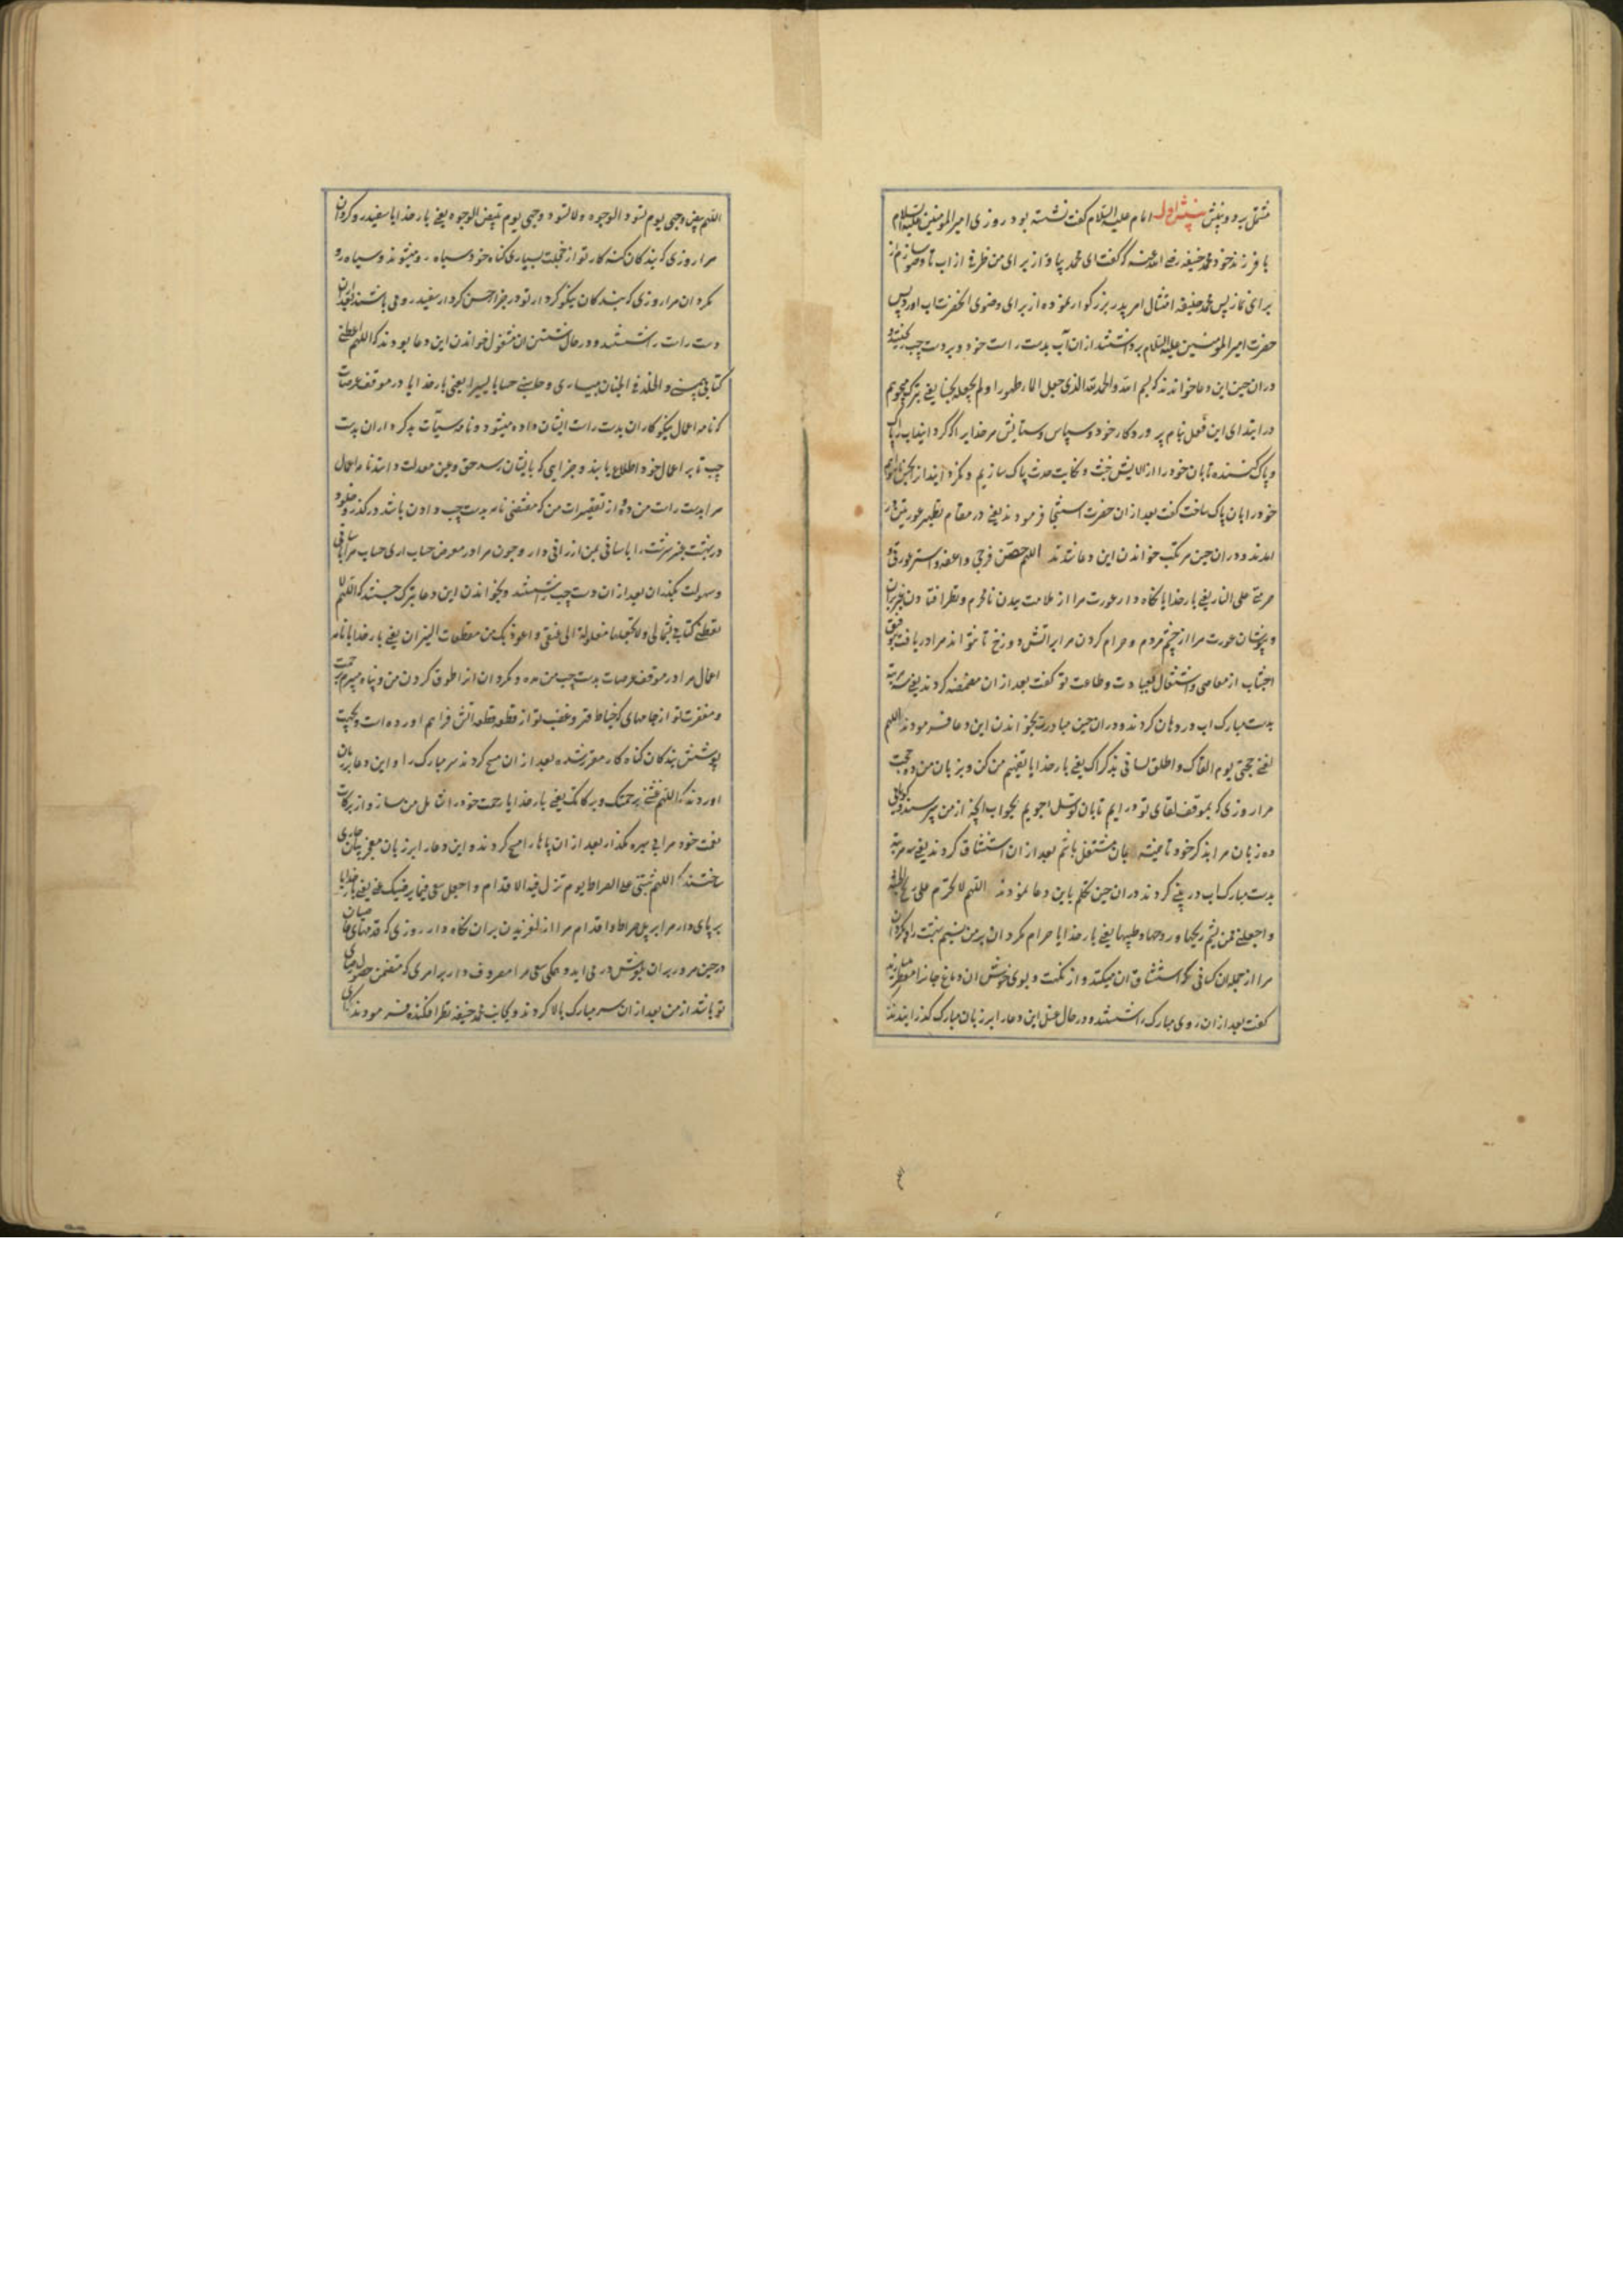 مشتمل بر دو بینش بینش اول امام علیه السلام گفت نشسته بود روزی امیر المومنین علیه السلام
با فرزند خود محمد حنیفه رضی الله عنه که گفت ای محمد بیاور از برای من ظرفی از اب تا وضو سازم از
برای نماز پس محمد حنیفه امتثال امر پدر بزرگوار نموده از برای وضوی انحضرت اب اورد پس
حضرت امیر المومنین علیه السلام برداشتند ازان آب بدست راست خود و بر دست چپ ریختند و
دران حین این دعا خواندند که بسم الله والحمد لله الذی جعل الماء طهورا ولم یجعله نجسا یعنی تبرک میجویم
در ابتدای این فعل بنام پروردکار خود و سپاس و ستایش مر خدایرا که گردانید اب را پاک
و پاک کننده تا بان خود را از الایش خبث و حدث پاک سازیم و نگردانید انرا نجس
خود را بان پاک ساخت گفت بعد ازان حضرت استنجا فرمودند یعنی در مقام تطهیر عورتین در
امدند و دران حین مرتکب خواندن این دعا شدند اللهم حصن فرجی واعفه واستر عورتی و
حرمنی علی النار یعنی بار خدایا نگاه دار عورت مرا از ملامت بدن نامحرم و نظر افتادن
و بپوشان عورت مرا از چشم مردم و حرام گردان مرا بر اتش دوزخ تا نتواند مرا دریافت
اجتناب از معاصی و اشتغال بعبادت و طاعت تو گفت بعد ازان مضمضه کردند یعنی سه مرتبه
بدست مبارک اب در دهان کردند و دران حین مبادرت بخواندن این دعا فرمودند اللهم
لقنی حجتی یوم القاک واطلق لسانی بذکراک یعنی بار خدایا تفهیم من کن و بر زبان من ده حجت
مرا روزی که بموقف لقای تو در ایم تا بان توسل جویم بجواب انچه از من پرسند و
ده زبان مرا بذکر خود تا همیشه بان مشتغل باشم بعد ازان استنشاق کردند یعنی سه مرتبه
بدست مبارک اب در بینی کردند دران حین تکلم باین دعا نمودند اللهم لا تحرم علی ریح الجنة
واجعلنی ممن یشم ریحها وروحها وطیبها یعنی بار خدایا حرام مگردان بر من نسیم جنت را و گردان
مرا از جمله ان کسانی که استنشاق ان میکنند و از نکهت و بوی خوش ان دماغ جانرا معطر میسازند
گفت بعد ازان روی مبارک را شستند و در حال غسل این دعا را بر زبان مبارک گذرانیدند
اللهم بیض وجهی یوم تسود الوجوه ولا تسود وجهی یوم تبیض الوجوه یعنی بار خدایا سفید رو گردان
مرا روزی که بندکان گنه کار تو از خجلت بسیاری گناه خود سیاه رو میشوند و سیاه رو
مگردان مرا روزی که بندکان نیکو کردار تو در جزا حسن کردار سفید رو می باشند بعد ازان
دست راست را شستند و در حال شستن ان مشغول خواندن این دعا بودند که اللهم اعطنی
کتابی بیمینی والخلد فی الجنان بیساری وحاسبنی حسابا یسیرا یعنی بار خدایا در موقف عرصات
که نامه اعمال نیکو کاران بدست راست ایشان داده میشود و نامه سیئات بدکرداران بدست
چپ تا بر اعمال خود اطلاع یابند و جزایی که بایشان رسد حق و عین معدلت دانند نامه اعمال
مرا بدست راست من ده و از تقصیرات من که مقتضی نامه بدست چپ دادن باشد درگذر و خلود
در بهشت را باسانی بمن ارزانی دار و چون مرا در معرض حساب اری حساب مرا باسانی
و سهولت بگذران بعد ازان دست چپ را شستند و بخواندن این دعا تبرک جستند که اللهم لا
تعطنی کتابی بشمالی ولا تجعلها مغلولة الی عنقی واعوذ بک من مقطعات النیران یعنی بار خدایا نامه
اعمال مرا در موقف عرصات بدست چپ من مده و مگردان انرا طوق گردن من و پناه میبرم برحمت
و مغفرت تو از جامهای که خیاط قهر و غضب تو از قطعه قطعه آتش فراهم اورده است و بجهت
پوشش بندکان گناه کار مقرر شده بعد ازان مسح کردند سر مبارک را و این دعا بزبان
اوردند که اللهم غشنی برحمتک وبرکاتک یعنی بار خدایا رحمت خود را شامل من ساز و از برکات
نعمت خود مرا بی بهره مگذار بعد ازان پاها را مسح کردند و این دعا را بر زبان معجز بیان جاری
ساختند که اللهم ثبتنی علی الصراط یوم تزل فیه الاقدام واجعل سعیی فیما یرضیک عنی یعنی بار خدایا
بر پای دار مرا بر پل صراط و اقدام مرا از لغزیدن بران نگاه دار روزی که قدمهای
در حین مرور بران بلغزش در می اید و همگی سعی مرا مصروف دار بر امری که متضمن حصول رضای
تو باشد از من بعد ازان سر مبارک بالا کردند و بجانب محمد حنیفه نظر افکنده فرمودند که